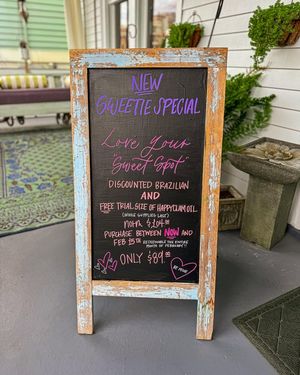 NEW
SWEETIE SPECIAL
Love Your
"Sweet Spot"
DISCOUNTED BRAZILIAN
AND
FREE TRIAL SIZE OF HAPPY CLAM OIL
(WHILE SUPPLIES LAST)
NORM $104.00
PURCHASE BETWEEN NOW AND
FEB 15TH REDEEMABLE THE ENTIRE
MONTH OF FEBRUARY!!
ONLY $89.00
BE MINE